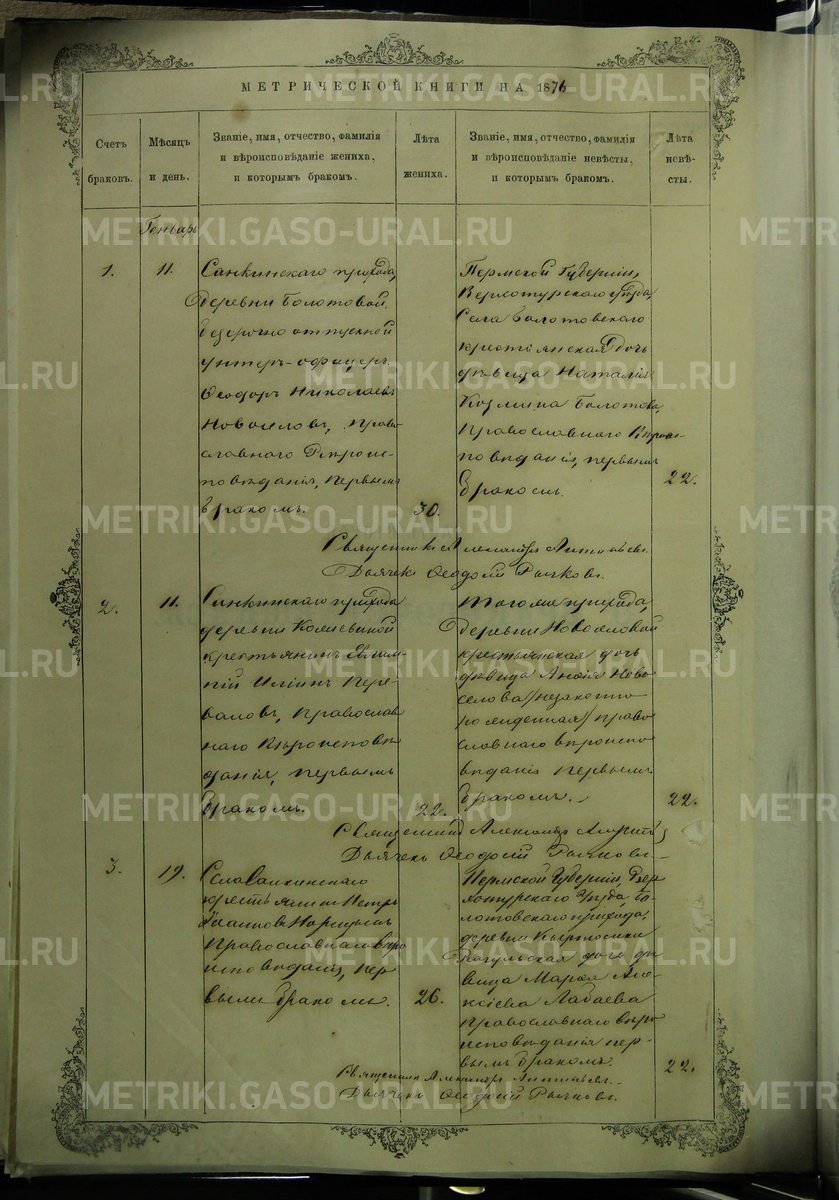 МЕТРИЧЕСКОЙ КНИГИ НА 1876
Счетъ браковъ.
Мѣсяцъ и день.
Званіе, имя, отчество, фамилія
и вѣроисповѣданіе жениха,
и которымъ бракомъ.
Лѣта жениха.
Званіе, имя, отчество, фамилія
и вѣроисповѣданіе невѣсты,
и которымъ бракомъ.
Лѣта невѣсты.
Генварь
1.
11.
Санкинскаго прихода,
деревни Болотовой
безсрочно отпускной
унтеръ-офицеръ
Ѳеодоръ Николаевъ
Новоселовъ, право
славнаго вѣроис-
повѣданія, первымъ
бракомъ.
30.
Пермской Губерніи,
Верхотурскаго уѣзда,
Села Болотовскаго
крестьянская дочь
дѣвица Наталія
Козмина Болотова,
Православнаго вѣрои-
повѣданія, первымъ
бракомъ.
22.
Священникъ Александръ
Дьячекъ Ѳеодосій Рычковъ.
2.
11.
Санкинскаго прихода
деревни
крестьянинъ Евлам-
пій Илiинъ Пере-
валовъ, православ
наго вѣроисповѣ
данія, первымъ
бракомъ.
22.
тогоже прихода,
деревни Новоселовой
крестьянская дочь
дѣвица Новосе
селова /незаконно
рожденная/ право
славнаго вѣроиспо
вѣданія первымъ
бракомъ.
22.
Священникъ Александръ
Дьячекъ Ѳеодосій Рычковъ.
3.
19.
Села Санкинскаго
крестьянинъ Петръ
Іоанновъ
Православнаго вѣро
исповѣданія, пер
вымъ бракомъ.
26.
Пермской Губерніи, Вер
хотурскаго Уѣзда, Бо
лотовскаго прихода,
деревни
дочь дѣ
вица Марѳа Але
ксіева Лабаева
православнаго вѣро
исповѣданія пер-
вымъ бракомъ.
22.
Священникъ Александръ
Дьячекъ Ѳеодосій Рычковъ.
METRIKI.GASO-URAL.RU